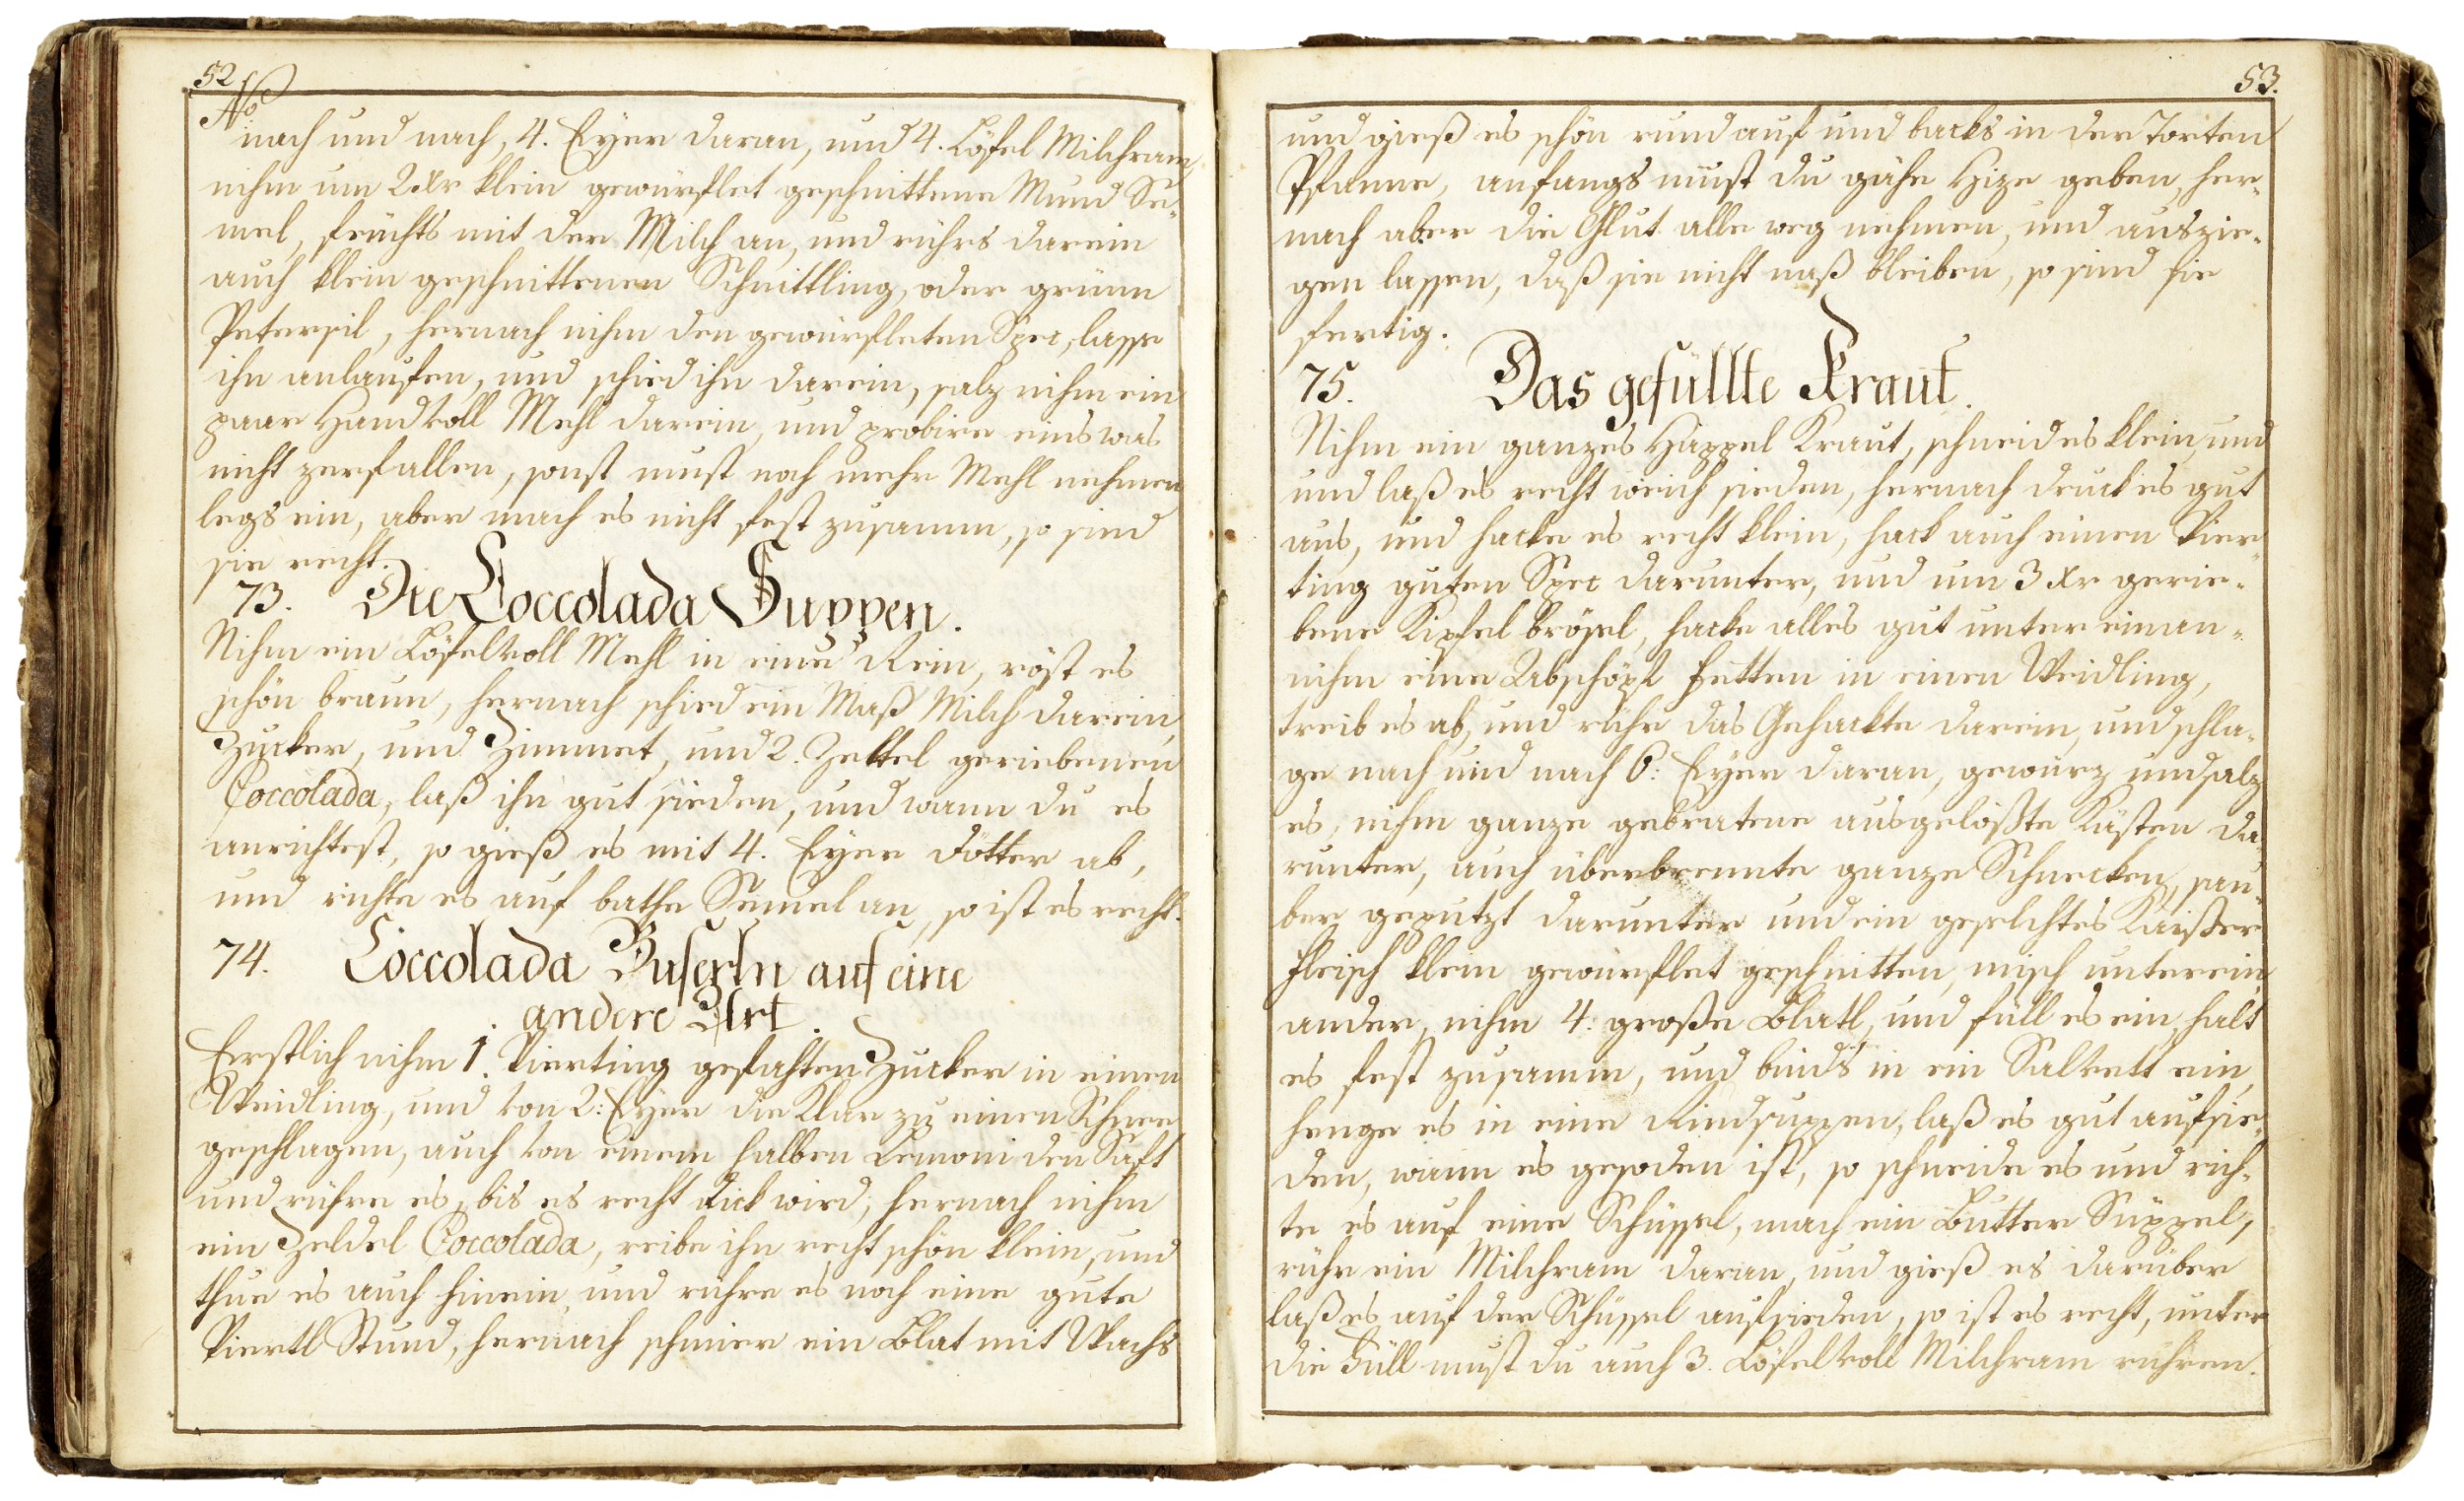 52
No
nach und nach, 4. Eyer daran, und 4. Löfel Milchram,
nihm um 2 xr klein gewürflet geschnittene Mund Se-
mel, feichts mit der Milch an, und rührs darein
auch klein geschnittenen Schnittling, oder grünn
Petersil, hernach nihm den gewürfleten Spec, lasse
ihn anlaufen, und schied ihn darein, salz nihm ein
paar Handvoll Mehl darein, und probire eins was
nicht zerfallen, sonst must noch mehr Mehl nehmen
legs ein, aber mach es nicht fest zusamm, so sind
sie recht.
73. Die Coccolada Suppen.
Nihm ein Löfelvoll Mehl in eine Rein, röst es
schön braun, hernach schied ein Maß Milch darein,
Zucker, und Zimmet, und 2. Zeltel geriebenen
Coccolada, laß ihn gut sieden, und wann du es
anrichtest, so gieß es mit 4. Eyer dötter ab,
und richte es auf bathe Semel an, so ist es recht.
74. Coccolada Buserln auf eine
andere Art.
Erstlich nihm 1. Vierting gefahten Zucker in einen
Weidling, und von 2: Eyer die Klar zu einen Schnee
geschlagen, auch von einem halben Lemoni den Saft
und rühre es, bis es recht dick wird, hernach nihm
ein Zeldel Coccolada, reibe ihn recht schön klein, und
thue es auch hinein, und rühre es noch eine gute
Viertl Stund, hernach schmier ein Blat mit Wachs
53.
und gieß es schön rund auf und backs in der Torten
Pfanne, anfangs must du gähe Hize geben, her-
nach aber die Glut alle weg nehmen, und auszie-
gen lassen, daß sie nicht naß bleiben, so sind sie
fertig.
75. Das gefüllte Kraut.
Nihm ein ganzes Happel Kraut, schneid es klein, und
und laß es recht weich sieden, hernach druck es gut
aus, und hacke es recht klein, hack auch einen Vier-
ting guten Spec darunter, und um 3 xr gerie-
bene Kipfel brösel, hacke alles gut unter einan-
nihm eine Abschöpf fetten in einen Weidling,
treib es ab, und rühr das Gehackte darein, und schla-
ge nach und nach 6: Eyer daran, gewürz und salz
es, nihm ganze gebratene ausgelößte Kästen da-
runter, auch überbrennte ganze Schnecken, sau-
ber geputzt darunter und ein geselchtes Kaißer
fleisch klein gewürflet geschnitten, misch unterein-
ander, nihm 4: große Blatl, und füll es ein, halt
es fest zusamm, und binds in ein Salvett ein,
henge es in eine Rindsuppen, laß es gut aufsie-
den, wann es gesoden ist, so schneide es und rich-
te es auf eine Schüssel, mach ein Butter Süppel,
rühr ein Milchram daran, und gieß es darüber
laß es auf der Schüssel aufsieden, so ist es recht, unter
die Füll must du auch 3. Löfelvoll Milchram rühren.